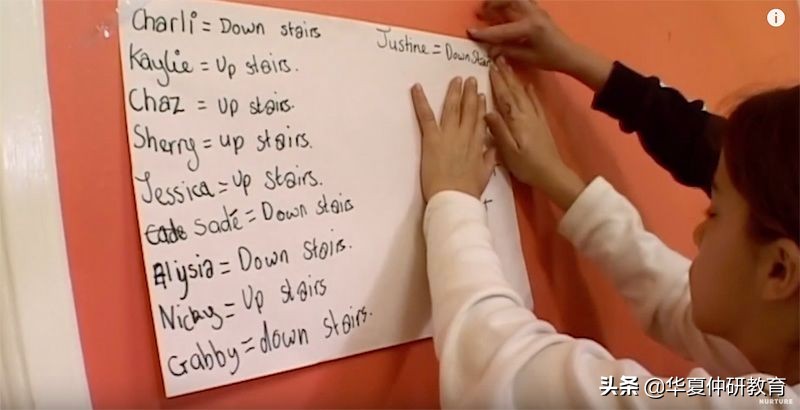 Charli = Down stairs
Justine = Down Stair
Kaylie = Up stairs.
Chaz = up stairs.
Sherry = up stairs.
Jessica = up stairs.
Sadé = Down stairs
Alysia = Down Stairs.
Nicky = Up stairs
Gabby = down stairs.
头条 @华夏仲研教育
NURTURE